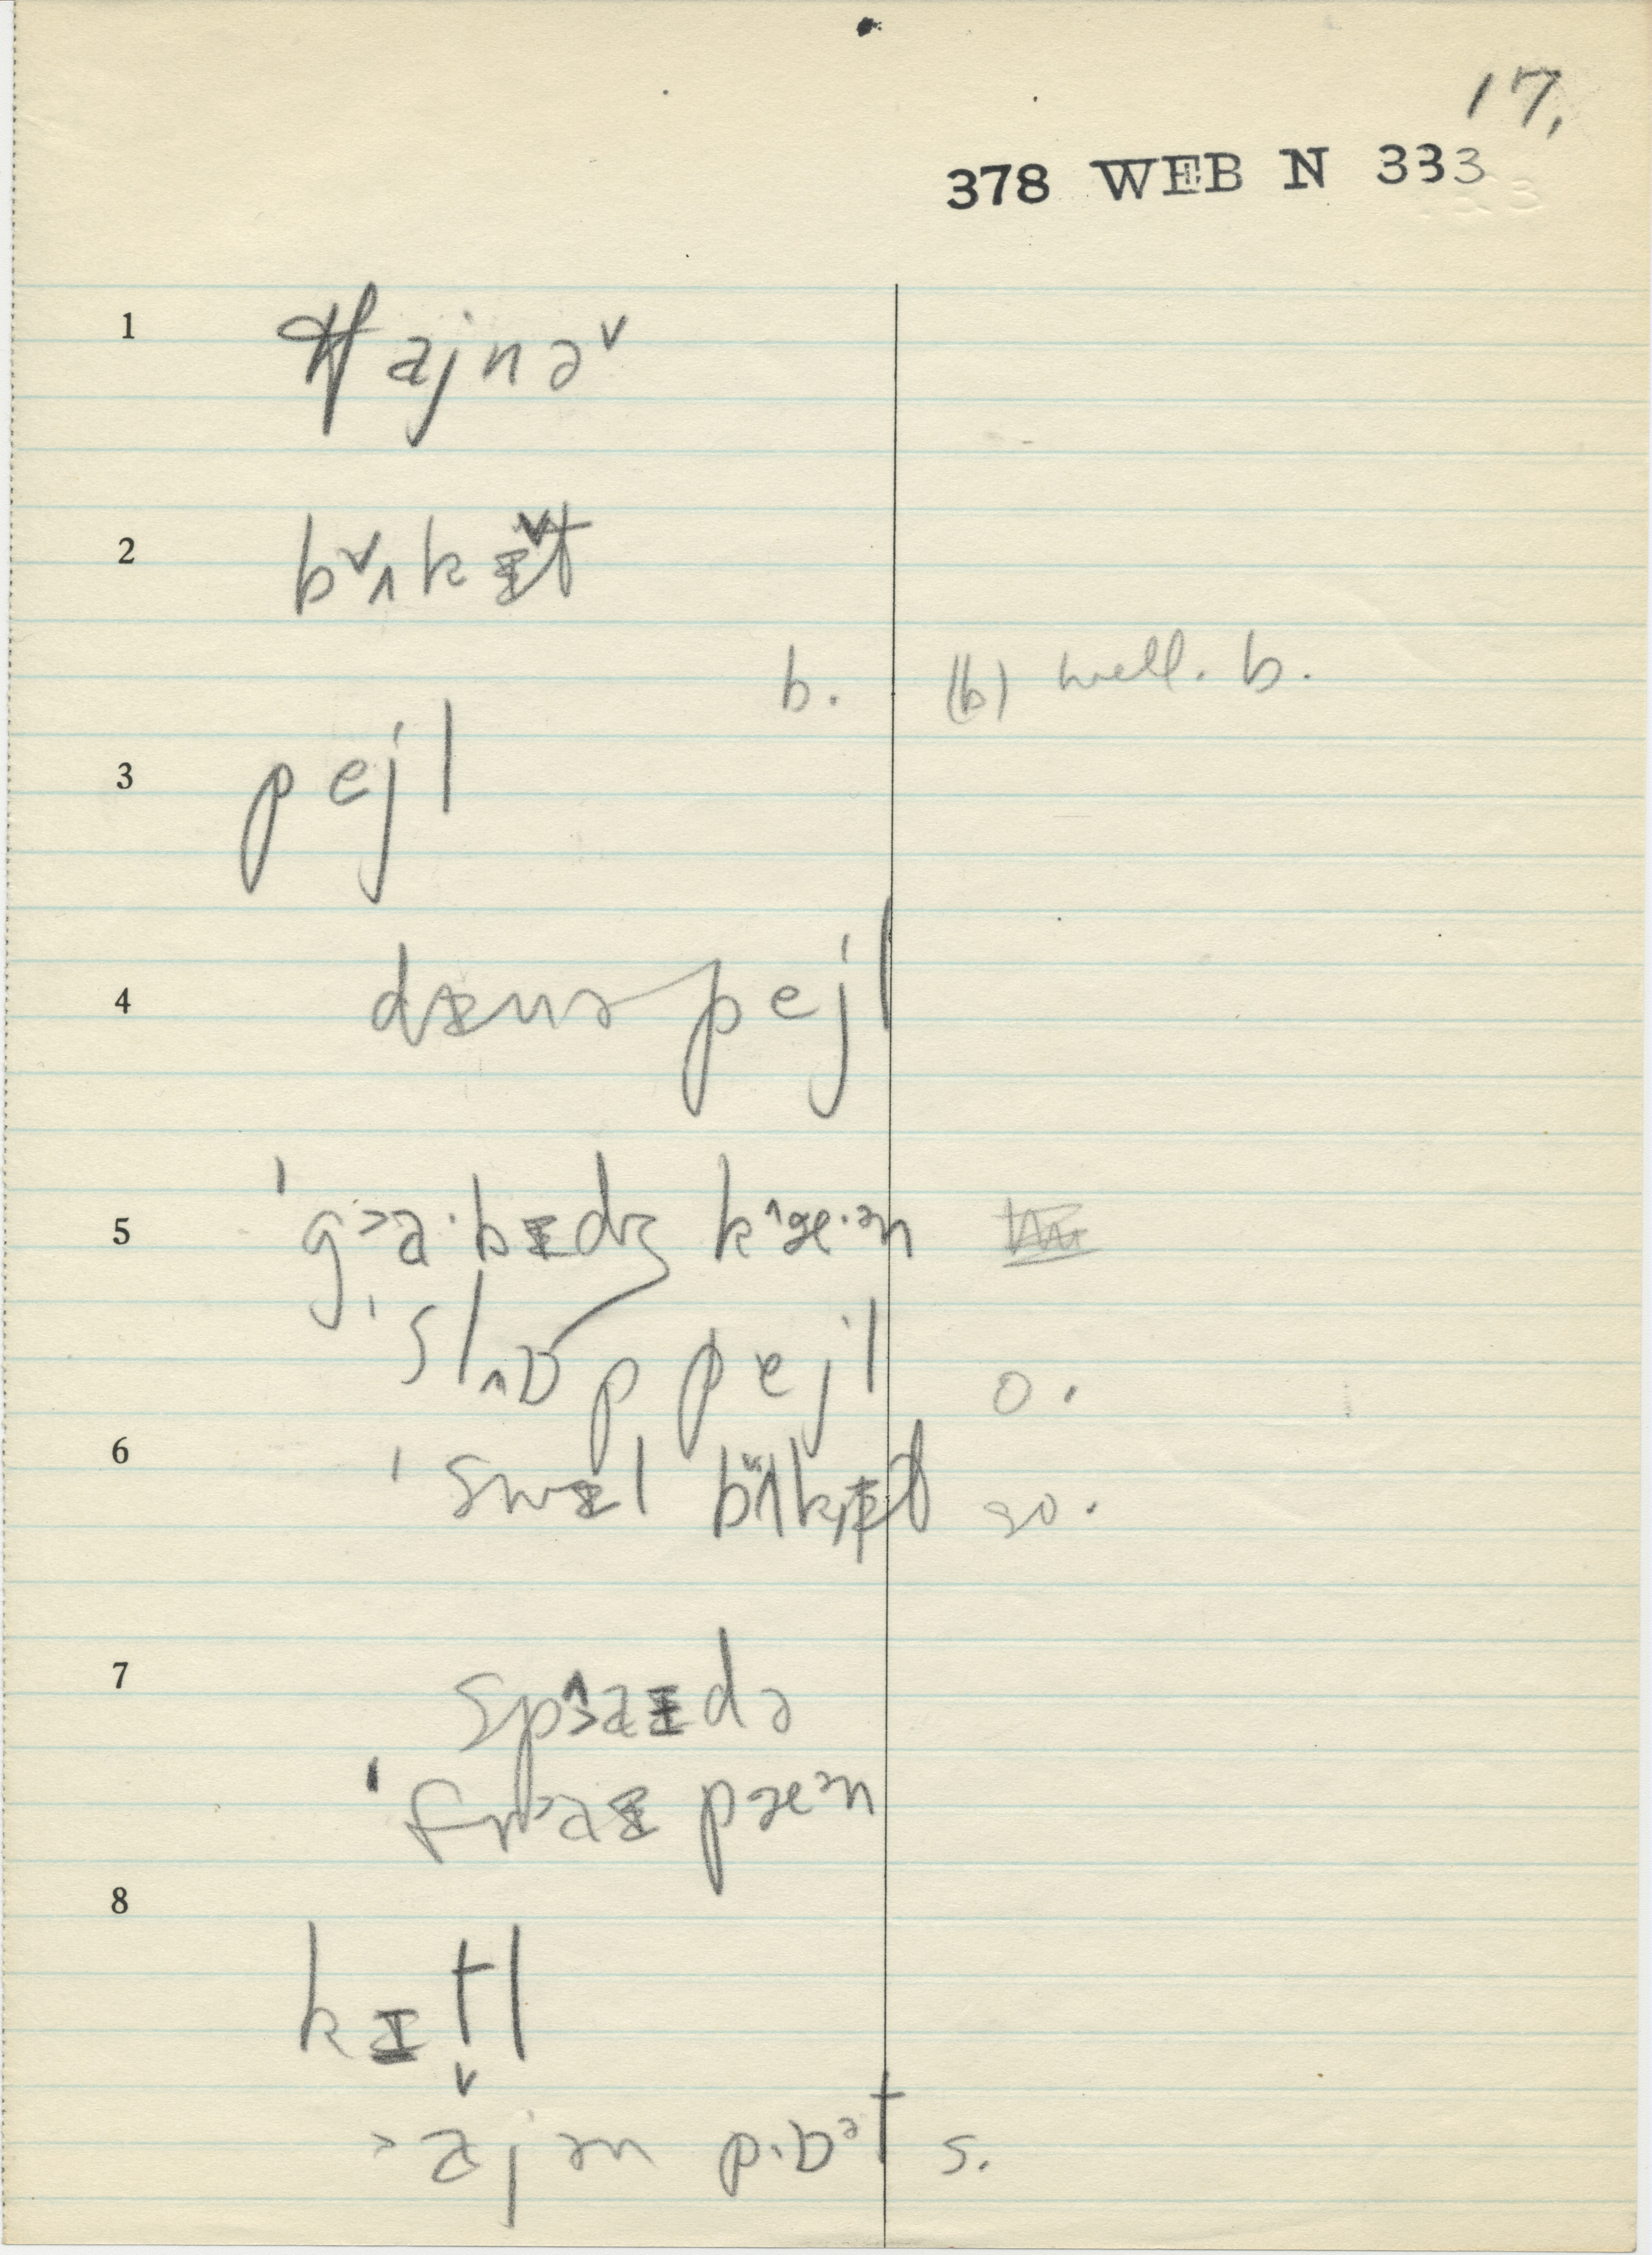 17.
378 WEB N 333
1
ajnə˅
2
b˅ʌkɪt
b. (b) well. b.
3
pejl
4
dɪnə pejl
5
ˈg˃a·bɪdʒ k^æ·ən
ˈslɒp pejl o.
6
ˈswɪl bʌkɪt so.
7
spaɪdə
ˈfraɪ pæən
8
kɪtl
˃ajən p·ɒət s.